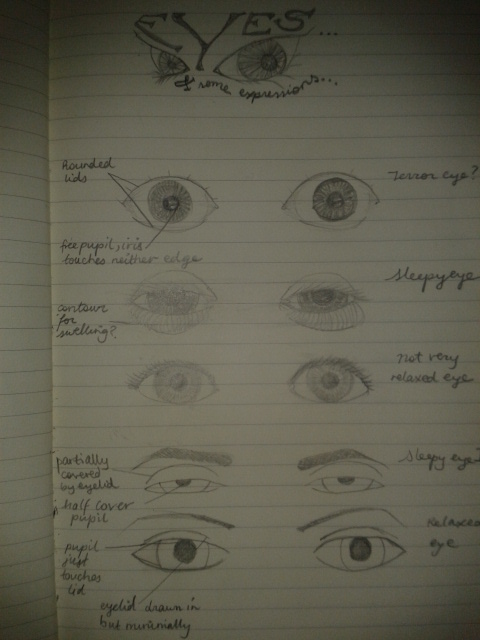 EYES...
& some expressions...
Rounded
lids
Terror eye?
free pupil, iris
touches neither edge
Sleepy eye
contour
for
swelling?
Not very
relaxed eye
partially
covered
by eyelid
Sleepy eye
half cover
pupil
Relaxed
eye
pupil
just
touches
lid
eyelid drawn in
but minimally